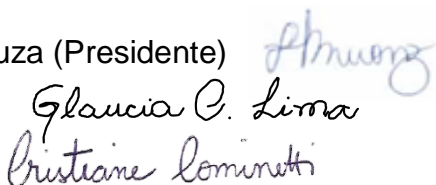 uza (Presidente)
Glaucia C. Lima
Cristiane Cominetti